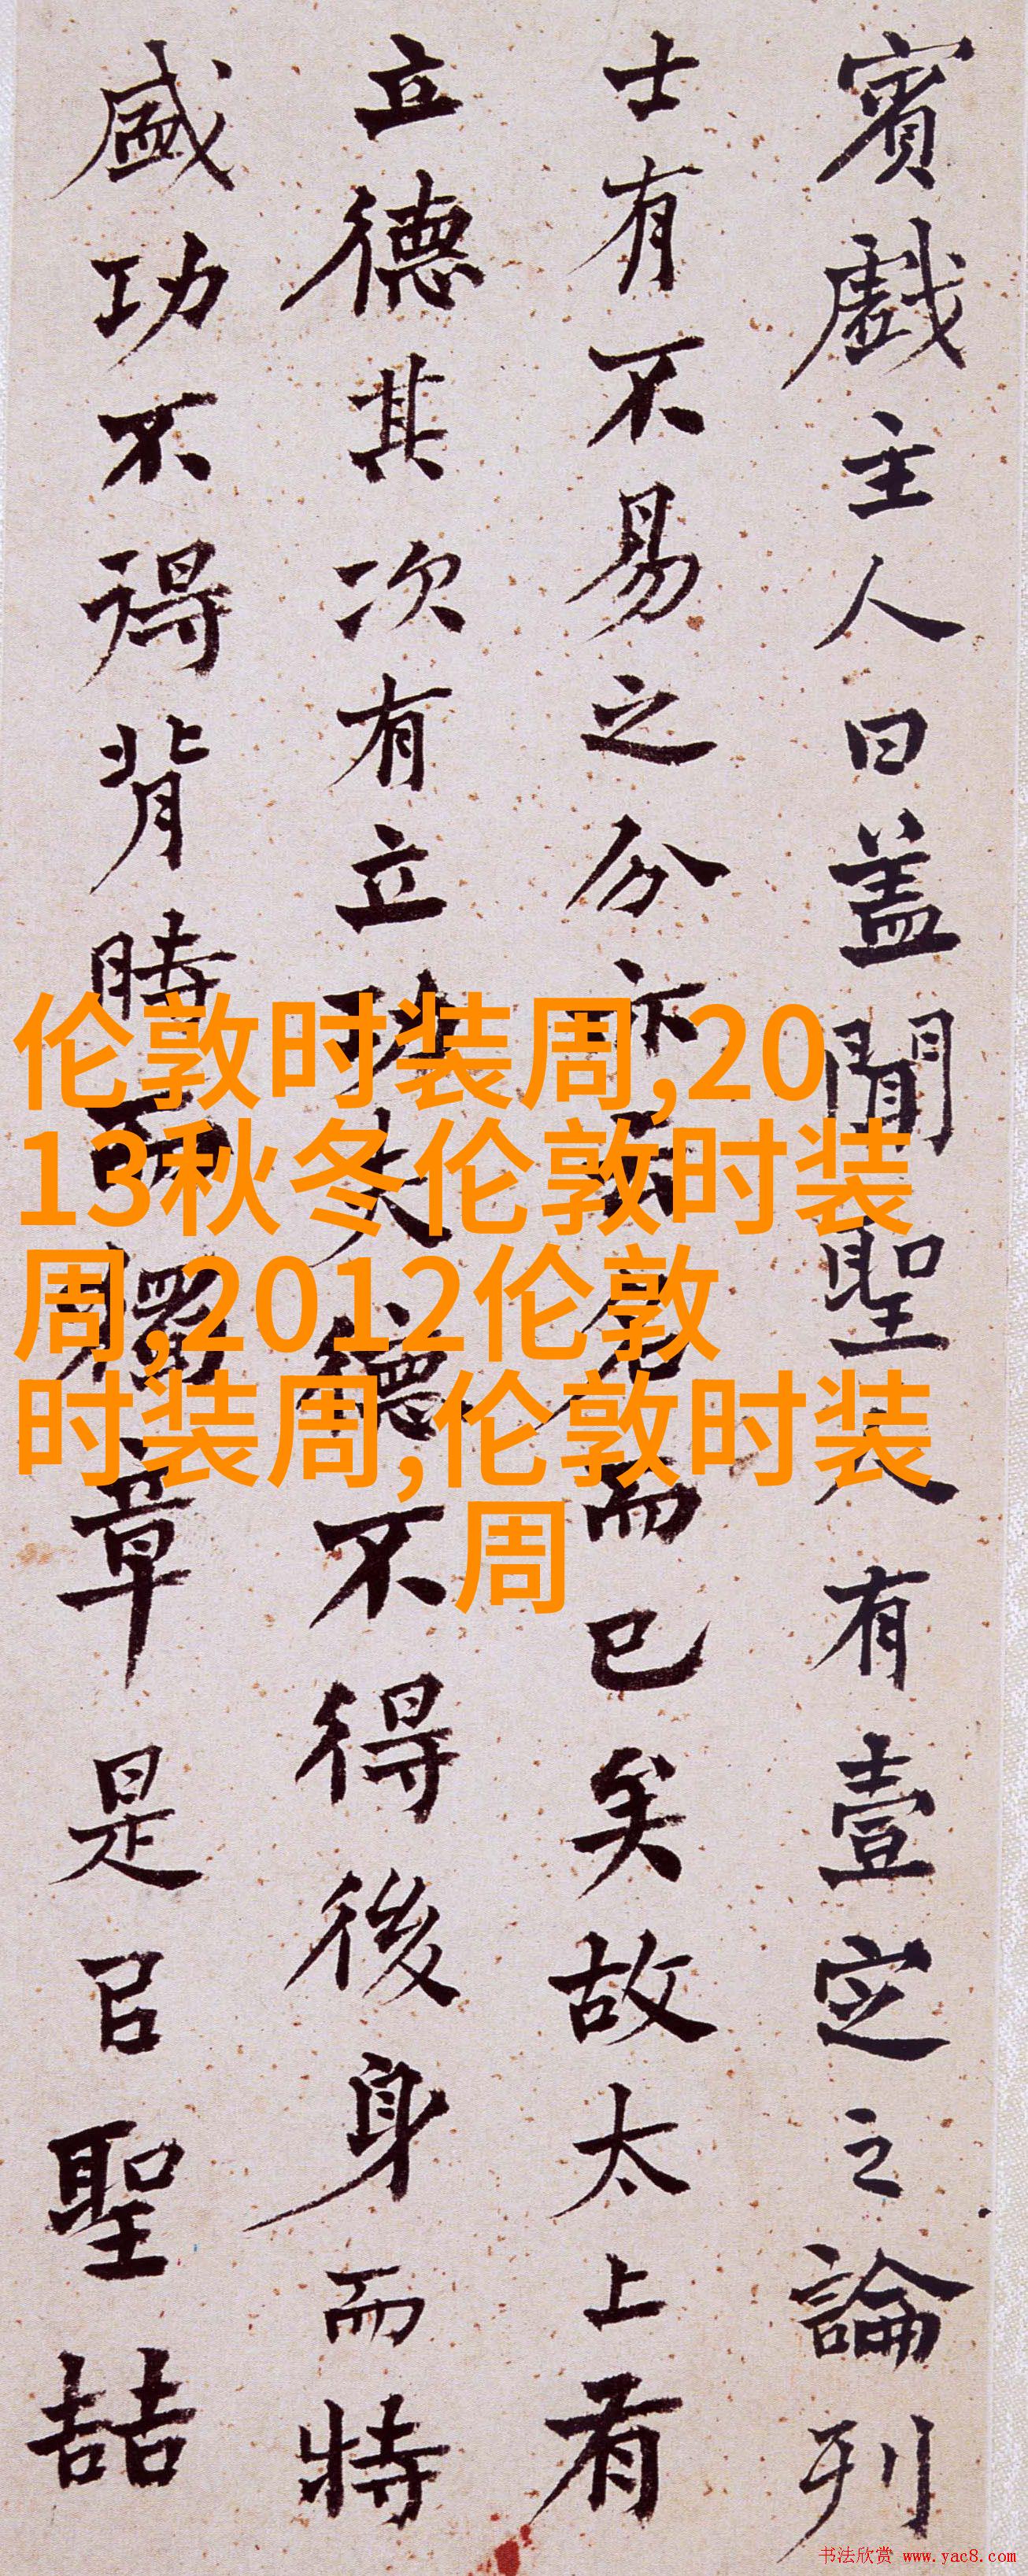 賓戲主人曰盖聞聖人有壹定之論列
士有不易之分亦云名而已矣故太上有
立德其次有立功夫德不得後身而特
盛功不得背時而獨章是以聖喆
伦敦时装周,20
13秋冬伦敦时装
周,2012伦敦
时装周,伦敦时装
周
书法欣赏 www.yac8.com